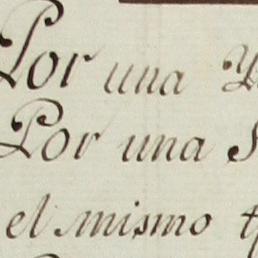 Por una
Por una
el mismo